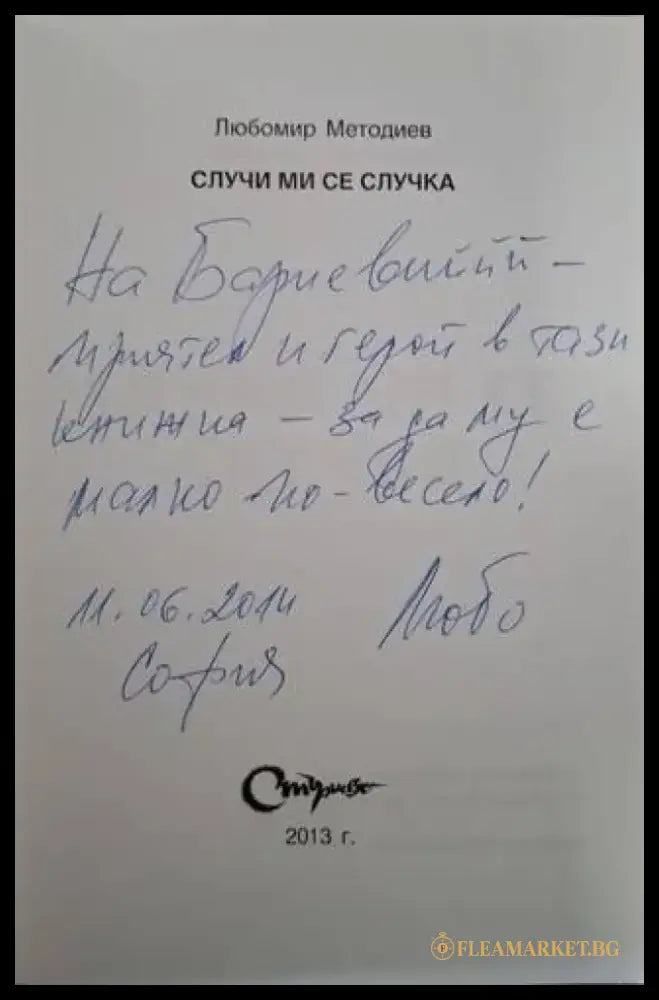 Любомир Методиев
СЛУЧИ МИ СЕ СЛУЧКА
На
приятел и герой в тази
книжка – за да му е
малко по-весело!
11.06.2014 Любо
София
2013 г.
FLEAMARKET.BG